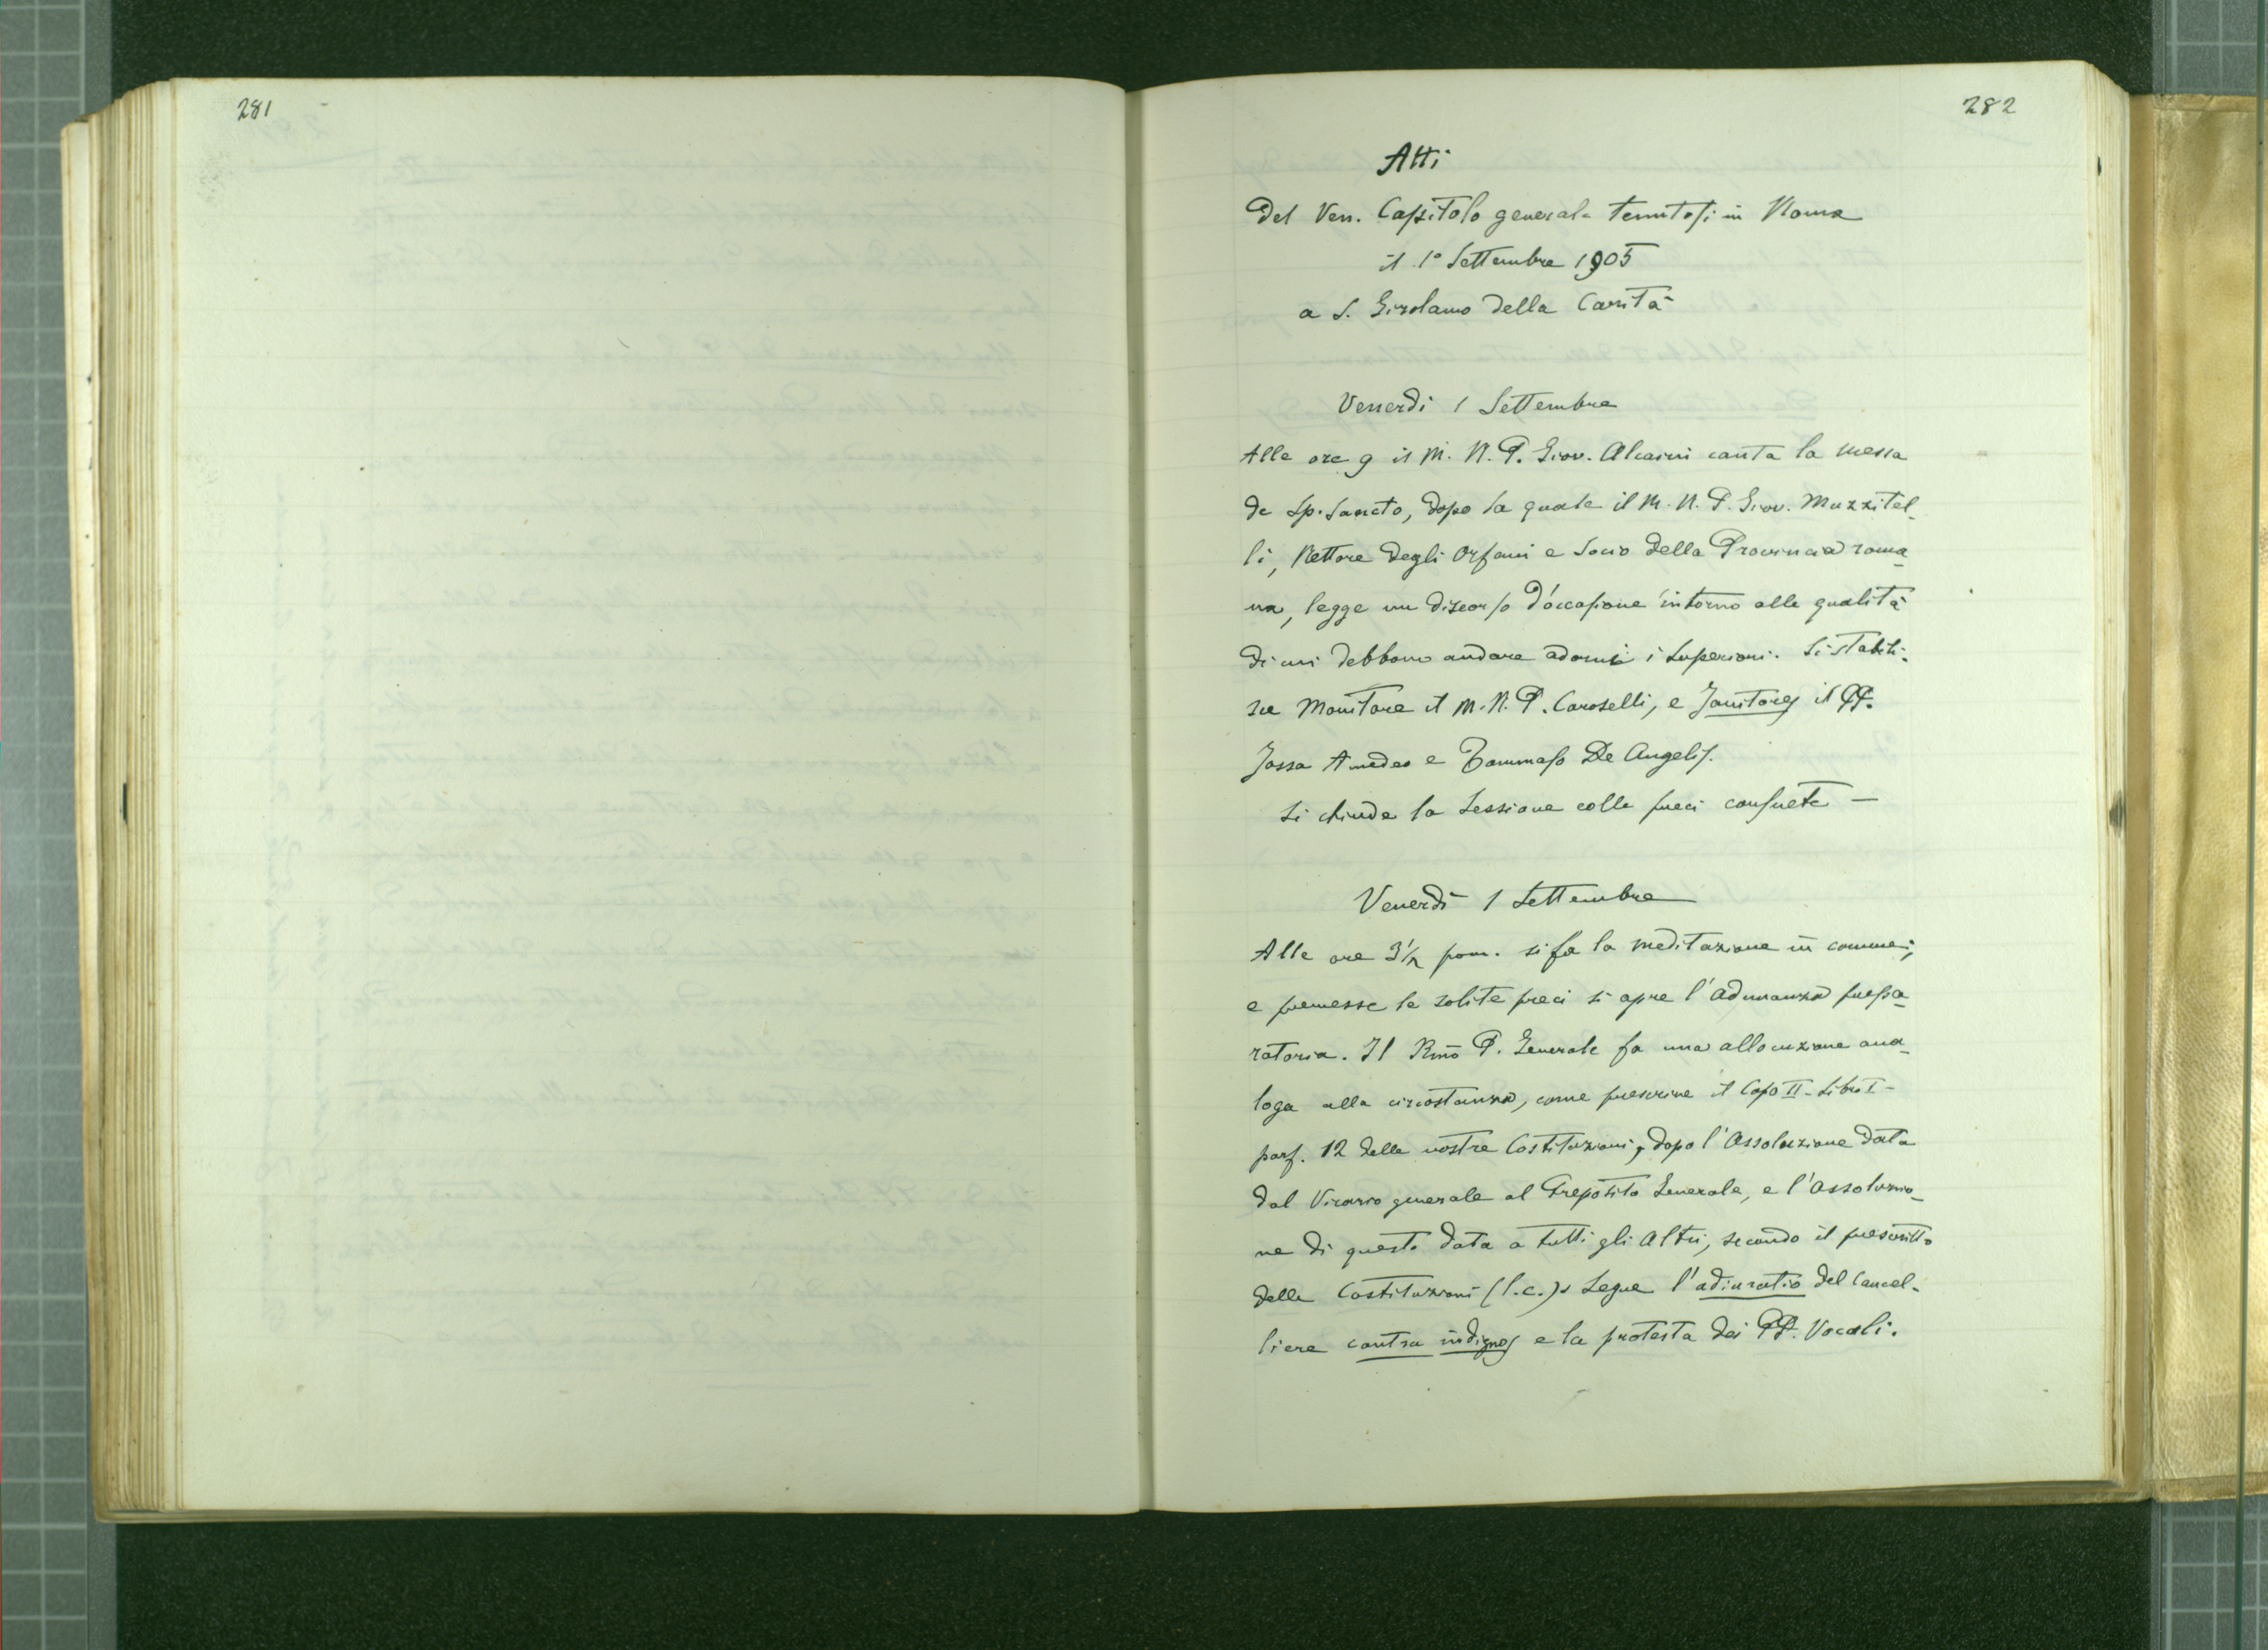 281
282
Atti
Del Ven. Capitolo generale tenutosi in Roma
il 1° Settembre 1905
a S. Girolamo della Carità
Venerdi 1 Settembre
Alle ore 9 il M. R. P. Giov. Alcaini canta la messa
de Sp. Sancto, dopo la quale il M. R. P. Giov. Muzzitel-
li, Rettore degli Orfani e Socio della Provincia roma-
na, legge un discorso d'occasione intorno alle qualità
di cui debbono andare adorni i Superiori. Si stabili-
sce Monitore il M. R. P. Caroselli, e Janitores il PP.
Jossa Amedeo e Tommaso De Angelis.
Si chiude la Sessione colle preci consuete —
Venerdì 1 Settembre
Alle ore 3 1/2 pom. si fa la meditazione in comune;
e premesse le solite preci si apre l'adunanza prepa-
ratoria. Il Rmo P. Generale fa una allocuzione ana-
loga alla circostanza, come prescrive il Capo II - Libro I -
parf. 12 delle nostre Costituzioni, dopo l'Assoluzione data
dal Vicario generale al Preposito Generale, e l'assoluzio-
ne di questo data a tutti gli Altri, secondo il prescritto
delle Costituzioni (l.c.). Segue l'adiuratio del Cancel-
liere contra indignos e la protesta dei PP. Vocali.